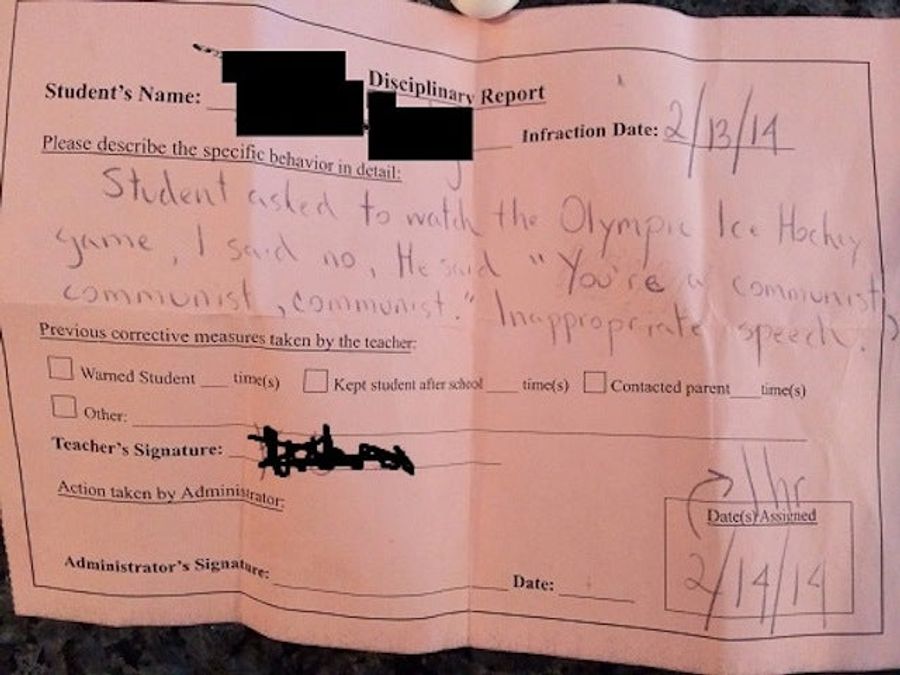 Disciplinary Report
Student's Name:
Infraction Date: 2/13/14
Please describe the specific behavior in detail:
Student asked to watch the Olympic Ice Hockey
game, I said no, He said "You're a communist
communist, communist." Inappropriate speech.
Previous corrective measures taken by the teacher:
Warned Student ___ time(s) Kept student after school ___ time(s) Contacted parent ___ time(s)
Other:
Teacher's Signature:
Action taken by Administrator:
1 hr
Date(s) Assigned
2/14/14
Administrator's Signature: Date: